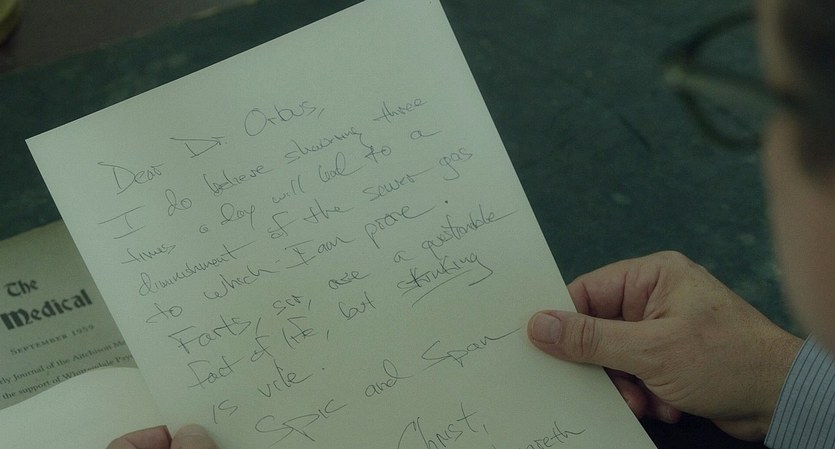 Dear Dr. Orbus,
I do believe showering three
times a day will lead to a
diminishment of the sewer gas
to which I am prone.
Farts, sir, are a questionable
fact of life, but stinking
is vile.
Spic and Span
Christ,
The
Medical
SEPTEMBER 1959
Journal of the
the support of